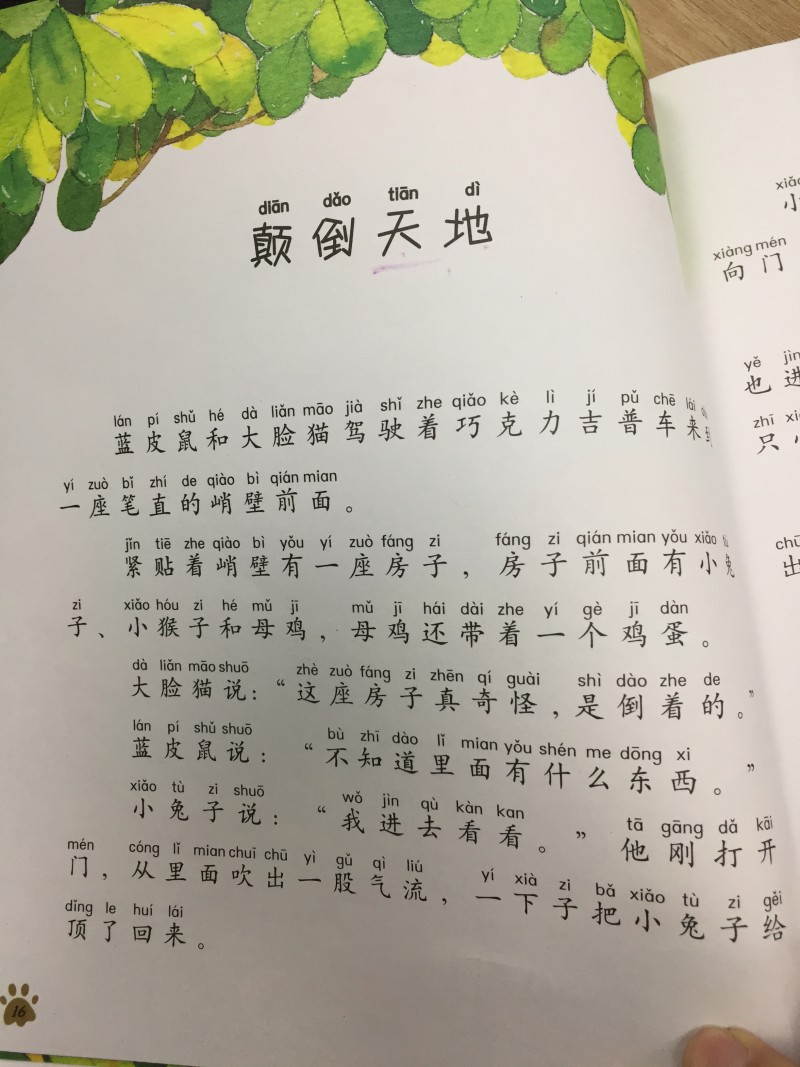 diān dǎo tiān dì
颠倒天地
lán pí shǔ hé dà liǎn māo jià shǐ zhe qiǎo kè lì jí pǔ chē lái
蓝皮鼠和大脸猫驾驶着巧克力吉普车来
yí zuò bǐ zhí de qiào bì qián mian
一座笔直的峭壁前面。
jǐn tiē zhe qiào bì yǒu yí zuò fáng zi fáng zi qián mian yǒu xiǎo tù
紧贴着峭壁有一座房子，房子前面有小兔
zi xiǎo hóu zi hé mǔ jī mǔ jī hái dài zhe yí gè jī dàn
子、小猴子和母鸡，母鸡还带着一个鸡蛋。
dà liǎn māo shuō zhè zuò fáng zi zhēn qí guài shì dào zhe de
大脸猫说：“这座房子真奇怪，是倒着的。”
lán pí shǔ shuō bù zhī dào lǐ mian yǒu shén me dōng xi
蓝皮鼠说：“不知道里面有什么东西。”
xiǎo tù zi shuō wǒ jìn qù kàn kan tā gāng dǎ kāi
小兔子说：“我进去看看。”他刚打开
mén cóng lǐ mian chuī chū yì gǔ qì liú yí xià zi bǎ xiǎo tù zi gěi
门，从里面吹出一股气流，一下子把小兔子给
dǐng le huí lái
顶了回来。
16
xiǎo
小
xiàng mén
向门
yě jìn
也进
zhī xiǎo
只小
chū
出